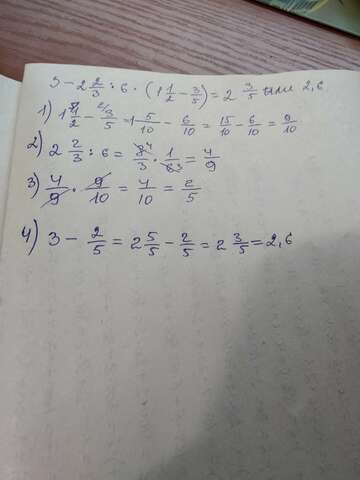 3 - 2 2/3 : 6 · (1 1/2 - 3/5) = 2 3/5 или 2,6
1) 1 1/2 - 3/5 = 1 5/10 - 6/10 = 15/10 - 6/10 = 9/10
2) 2 2/3 : 6 = 8/3 · 1/6 = 4/9
3) 4/9 · 9/10 = 4/10 = 2/5
4) 3 - 2/5 = 2 5/5 - 2/5 = 2 3/5 = 2,6